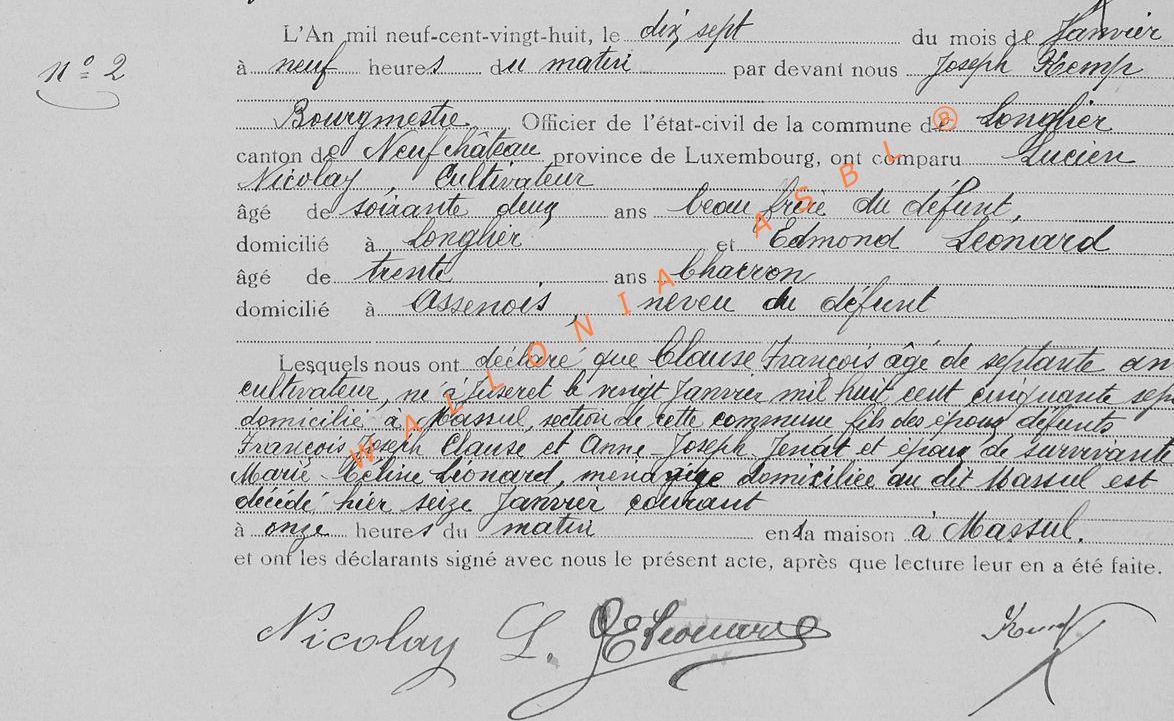 L'An mil neuf-cent-vingt-huit, le dix sept du mois de Janvier
n° 2
à neuf heures du matin par devant nous Joseph Kemp
Bourgmestre Officier de l'état-civil de la commune de Longlier
canton de Neufchâteau province de Luxembourg, ont comparu Lucien
Nicolay, Cultivateur
âgé de soixante deux ans beau frère du défunt,
domicilié à Longlier et Edmond Léonard
âgé de trente ans Charron
domicilié à Assenois, neveu du défunt
Lesquels nous ont déclaré que Clause François âgé de septante an
cultivateur, né à Juseret le vingt Janvier mil huit cent cinquante sep
domicilié à Massul, section de cette commune fils des époux défunts
François Joseph Clause et Anne Joseph Jenat et époux de survivante
Marie Léonard, menagère domiciliée au dit Massul est
décédé hier seize Janvier courant
à onze heures du matin en sa maison à Massul.
et ont les déclarants signé avec nous le présent acte, après que lecture leur en a été faite.
Nicolay L. E Léonard Kemp
WALLONIA ASBL ®